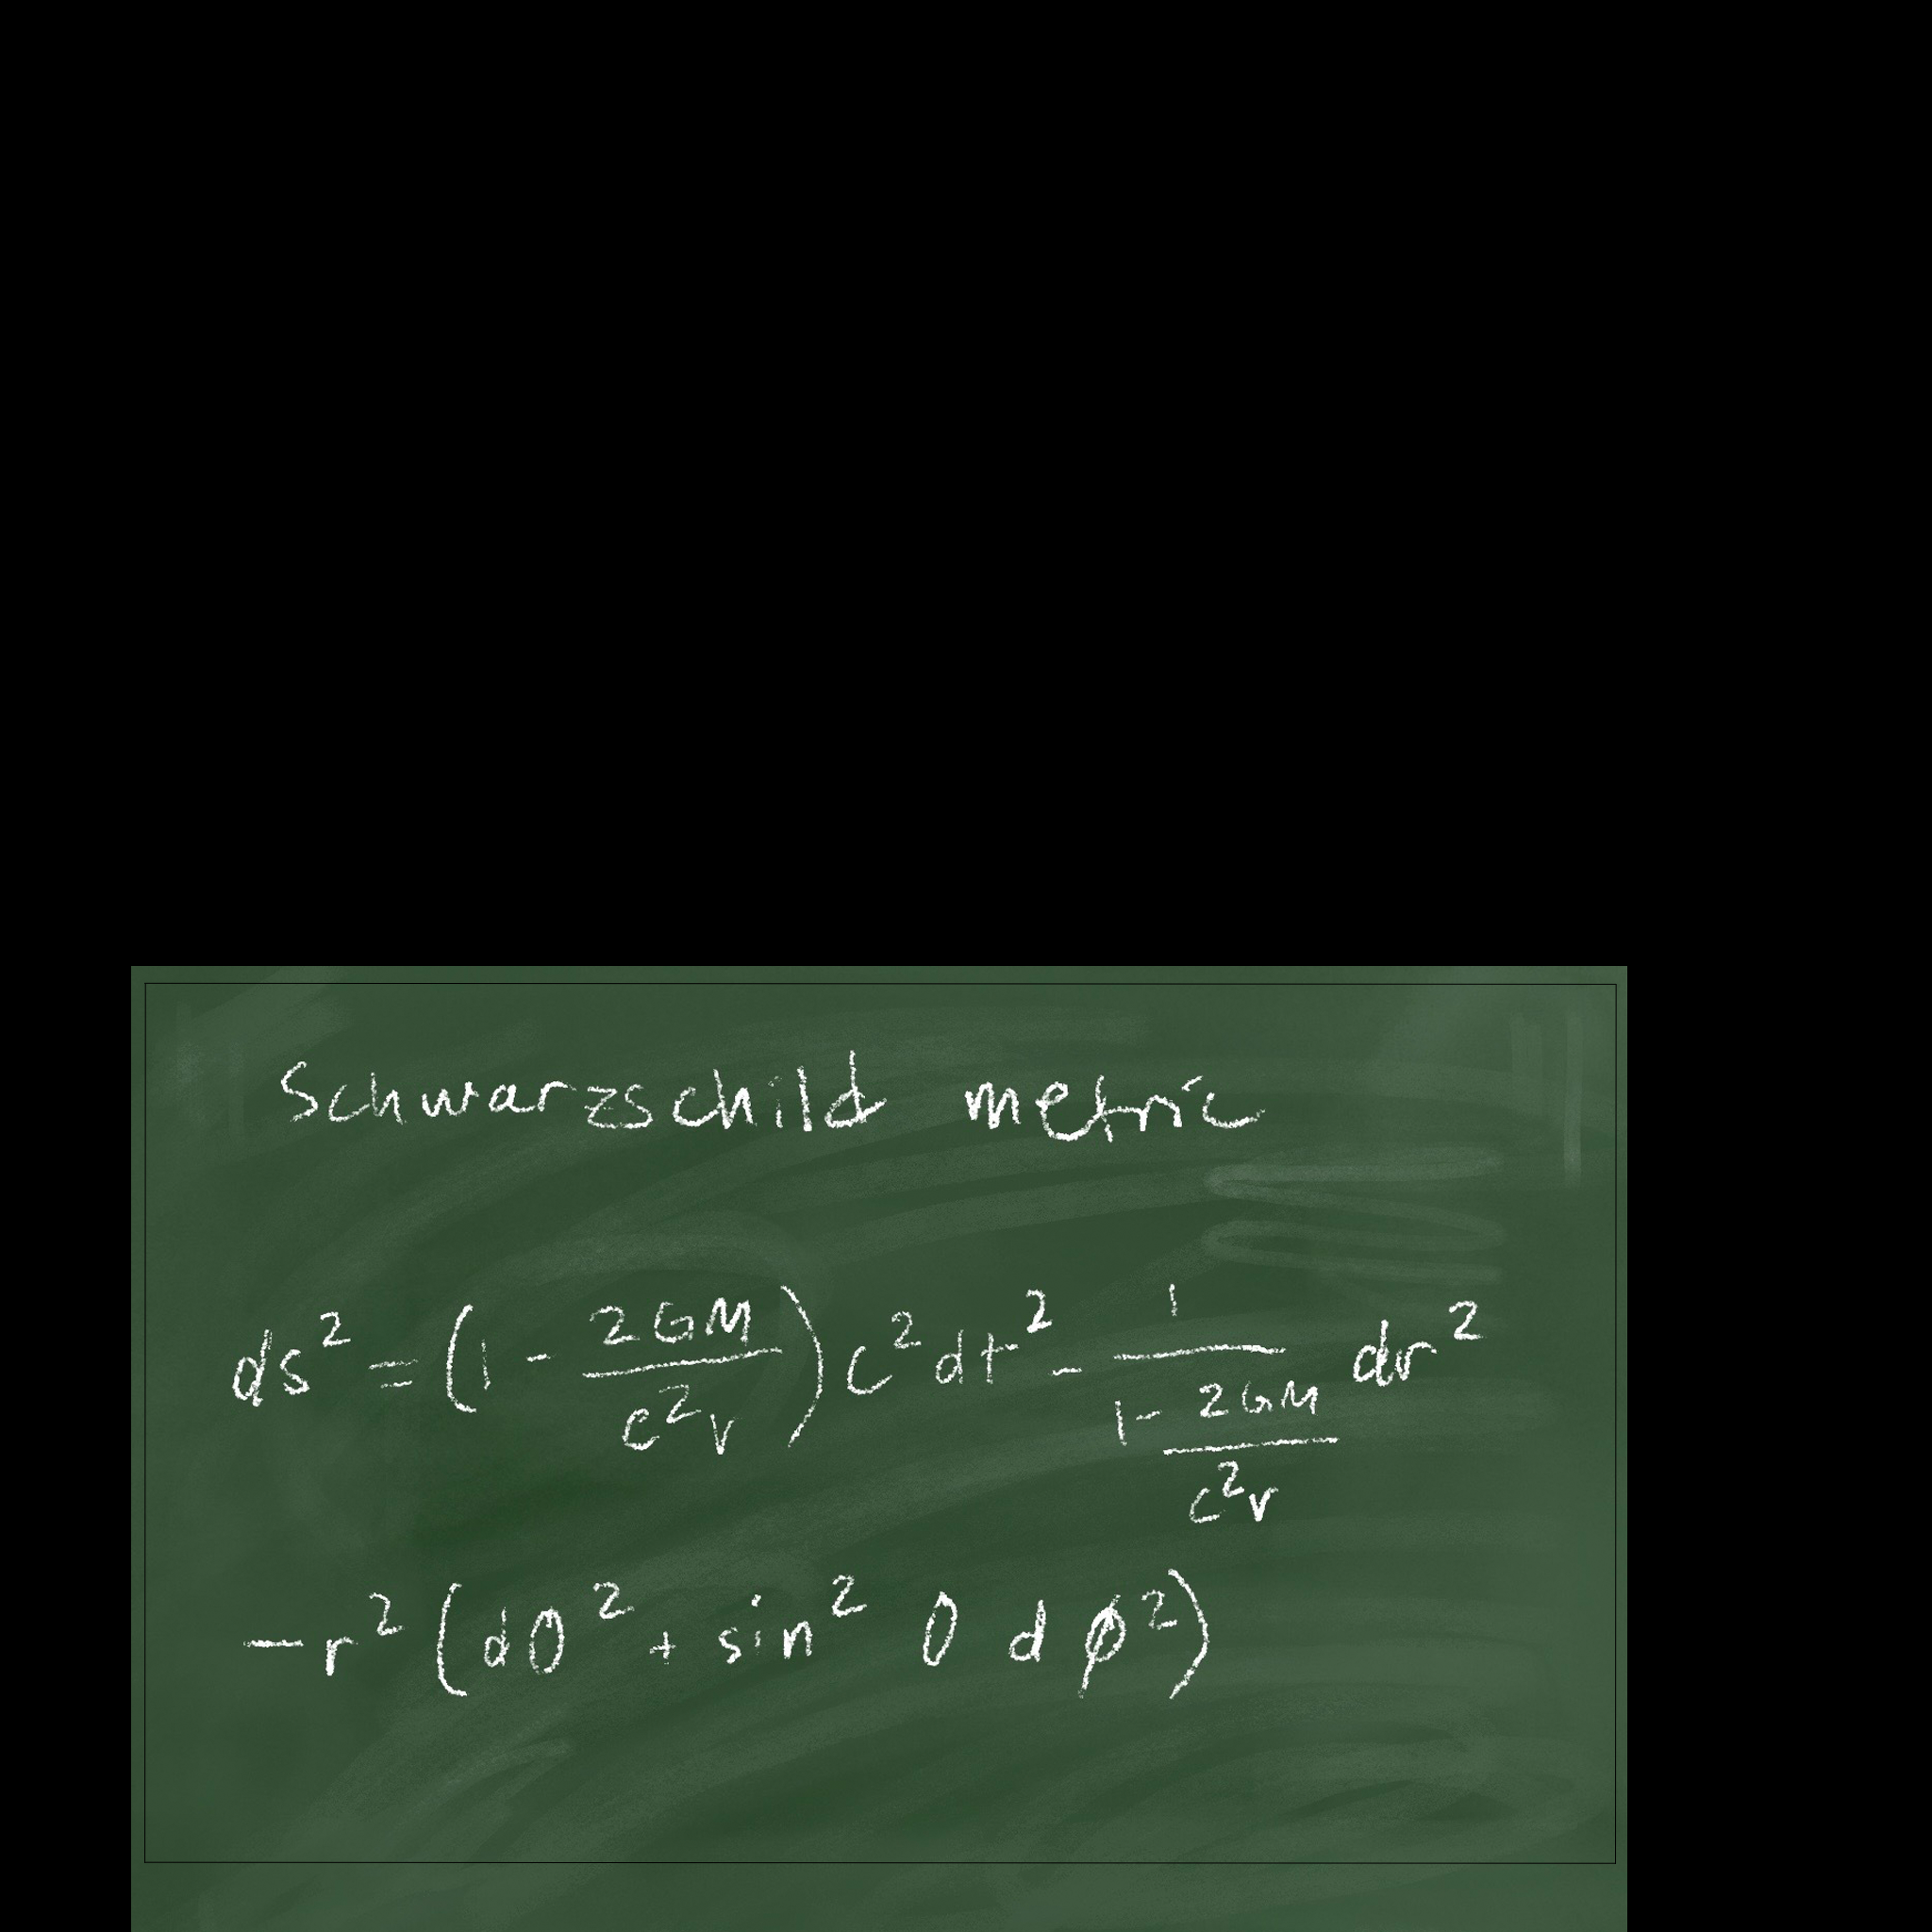 Schwarzschild metric
ds² = (1 - 2GM/c²r) c² dt² - 1/(1 - 2GM/c²r) dr²
-r² (dθ² + sin² θ dϕ²)